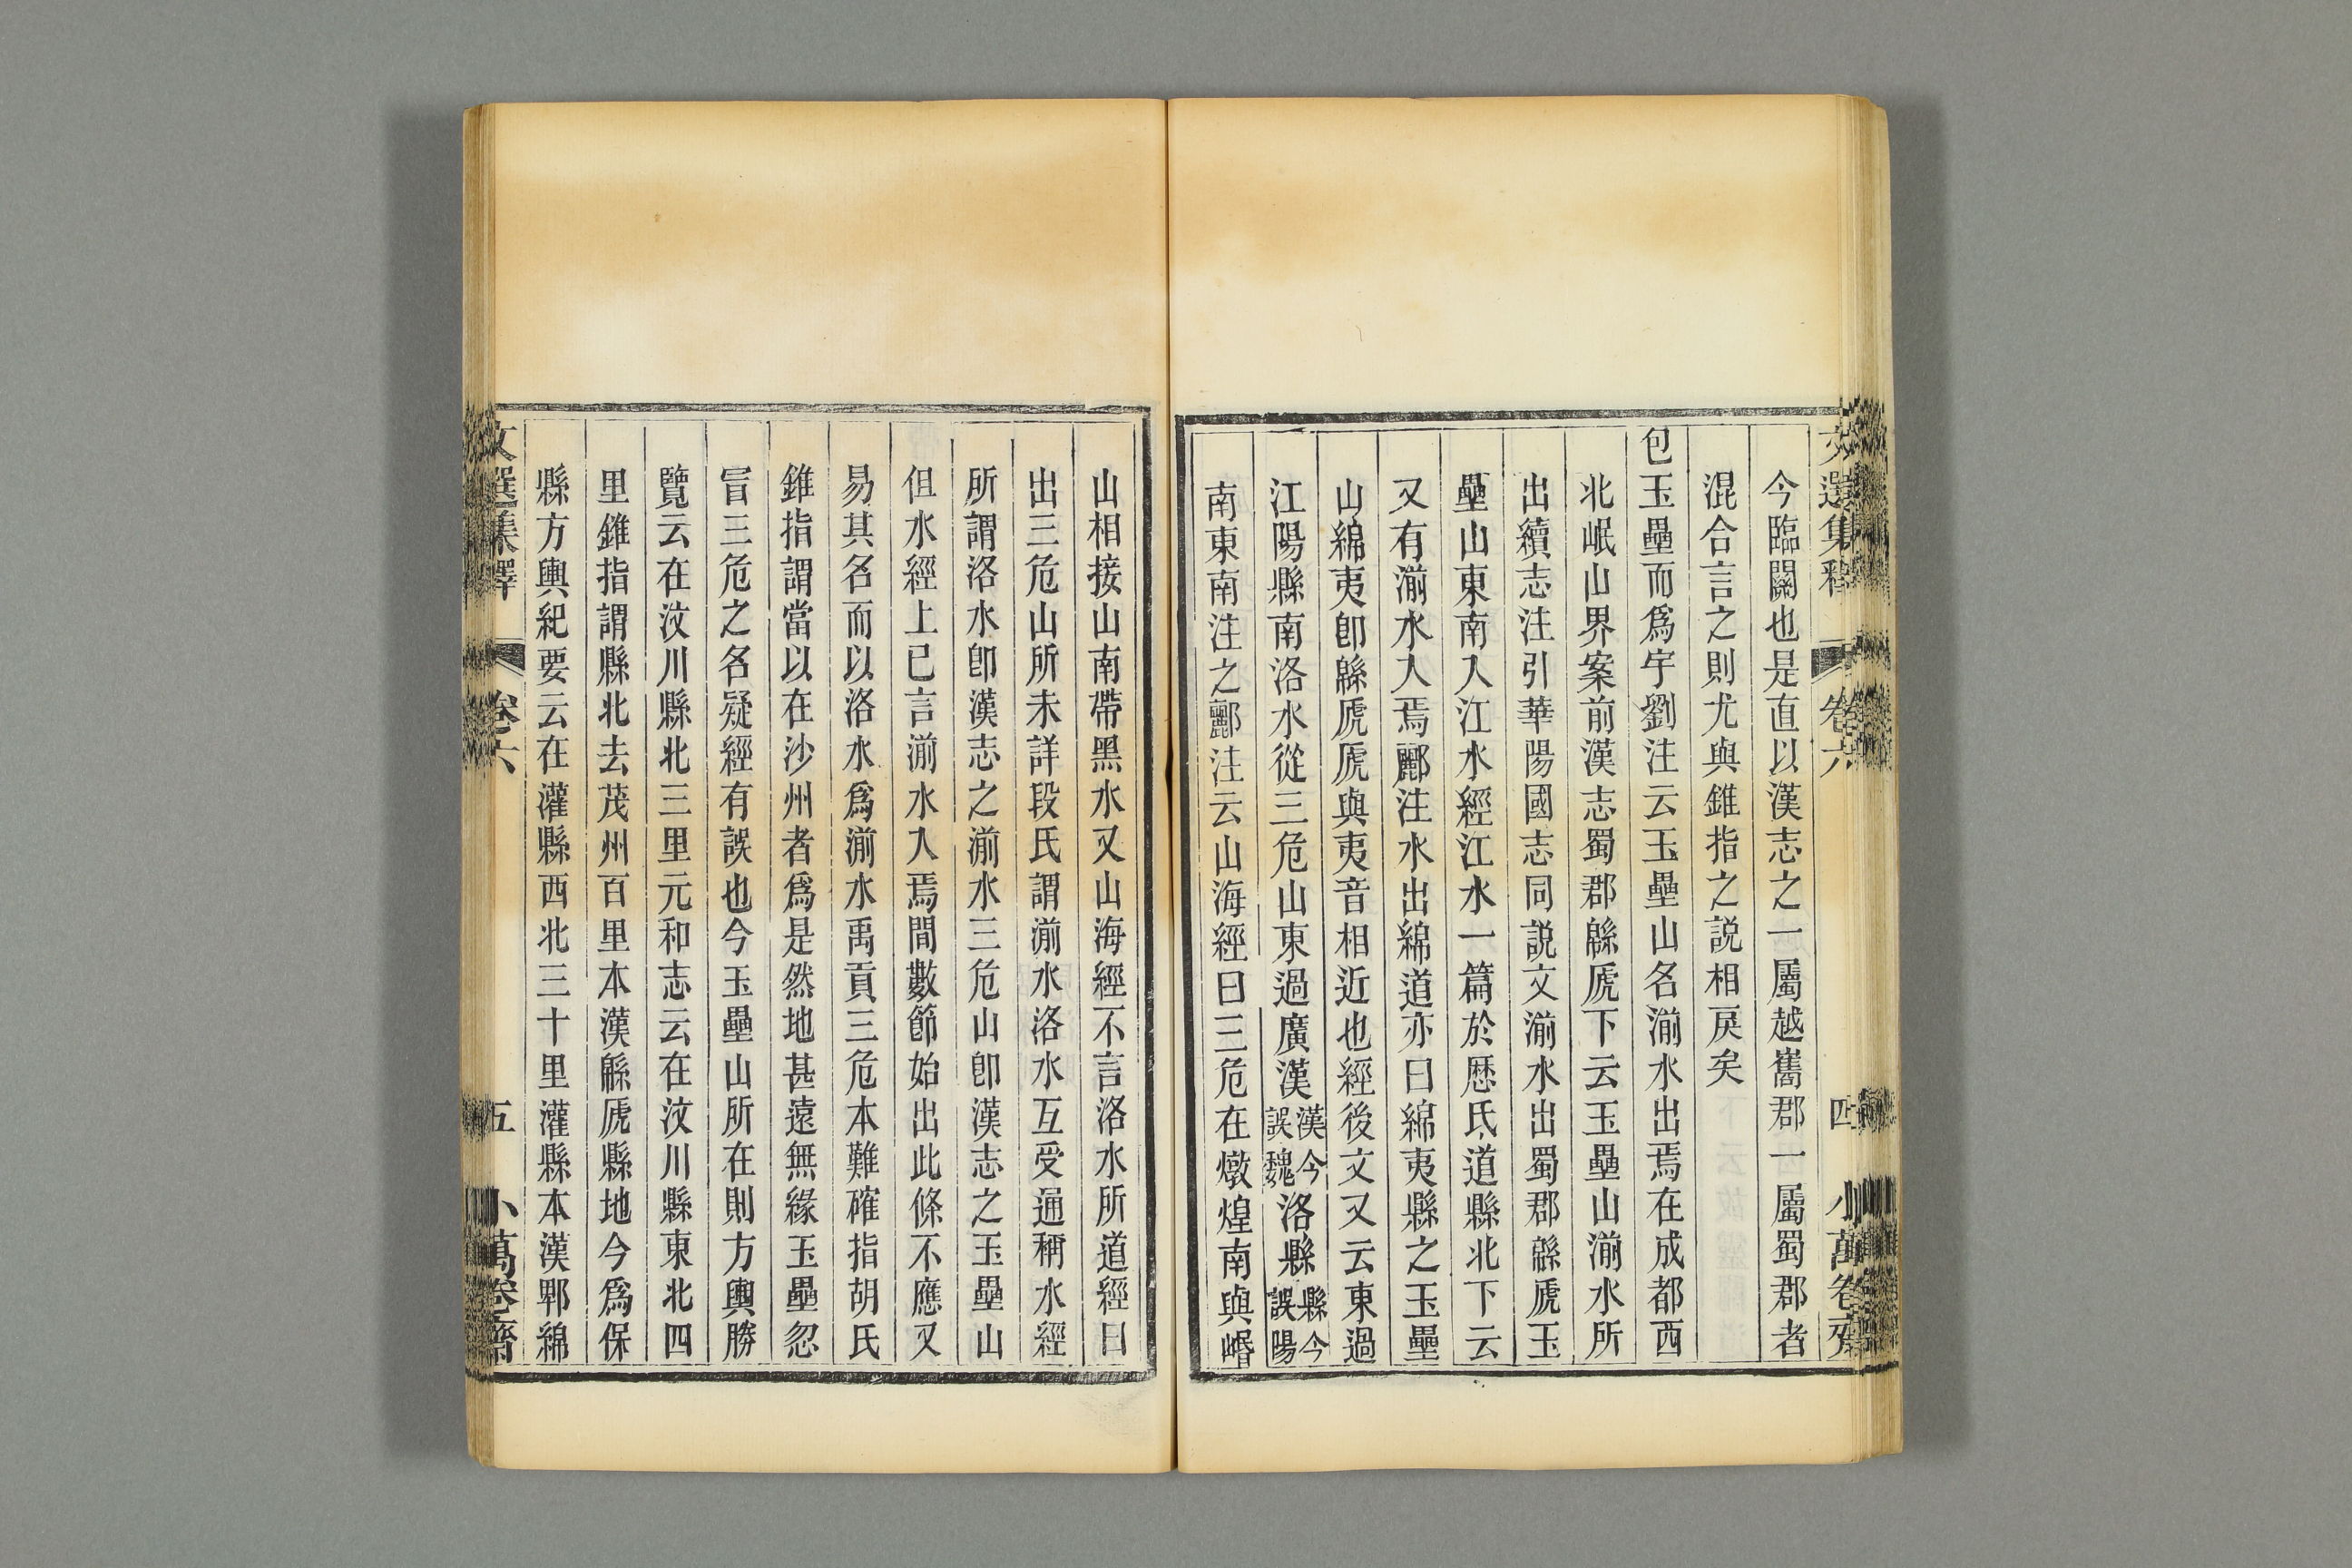 文選集釋 卷六 四 小萬卷齋
今臨關也是直以漢志之一屬越巂郡一屬蜀郡者
混合言之則尤與錐指之説相戾矣
包玉壘而爲宇劉注云玉壘山名湔水出焉在成都西
北岷山界案前漢志蜀郡緜虒下云玉壘山湔水所
出續志注引華陽國志同説文湔水出蜀郡緜虒玉
壘山東南入江水經江水一篇於厯氐道縣北下云
又有湔水入焉酈注水出綿道亦曰綿夷縣之玉壘
山綿夷卽緜虒虒與夷音相近也經後文又云東過
江陽縣南洛水從三危山東過廣漢漢今誤魏洛縣縣今誤陽
南東南注之酈注云山海經曰三危在燉煌南與㟭
山相接山南帶黑水又山海經不言洛水所道經曰
出三危山所未詳段氏謂湔水洛水互受通稱水經
所謂洛水卽漢志之湔水三危山卽漢志之玉壘山
但水經上已言湔水入焉間數節始出此條不應又
易其名而以洛水爲湔水禹貢三危本難確指胡氏
錐指謂當以在沙州者爲是然地甚遠無緣玉壘忽
冒三危之名疑經有誤也今玉壘山所在則方輿勝
覽云在汶川縣北三里元和志云在汶川縣東北四
里錐指謂縣北去茂州百里本漢緜虒縣地今爲保
縣方輿紀要云在灌縣西北三十里灌縣本漢郫綿
文選集釋 卷六 五 小萬卷齋